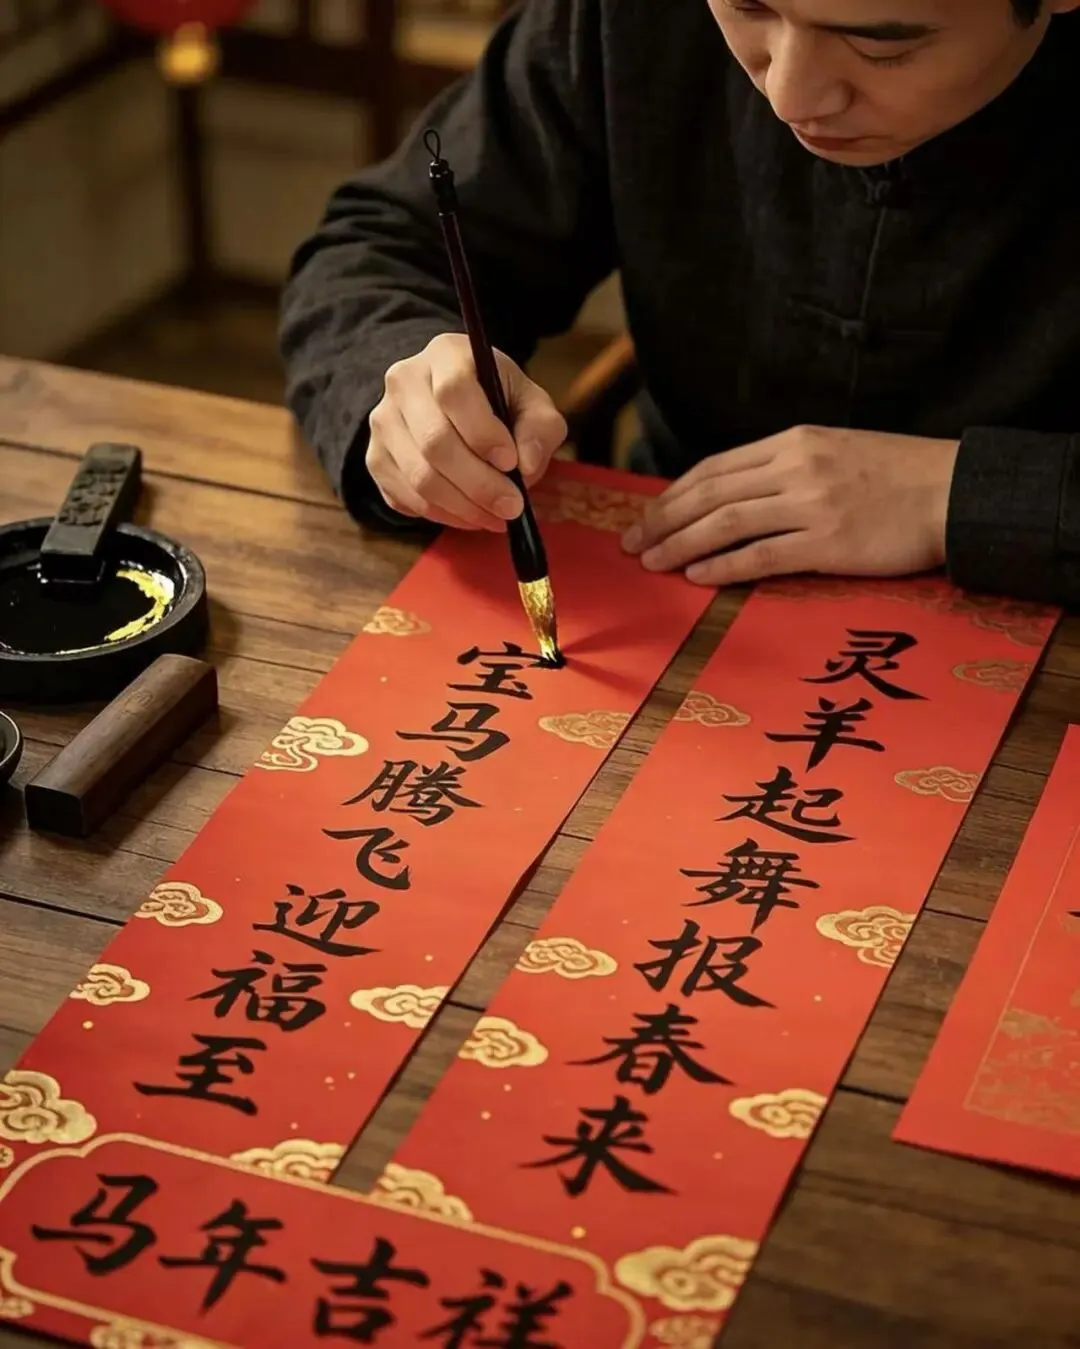 宝马腾飞迎福至
灵羊起舞报春来
马年吉祥